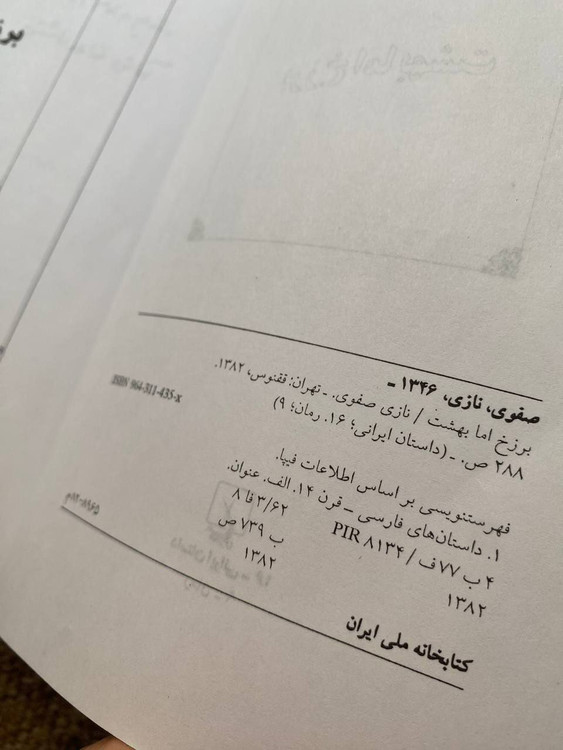 صفوی، نازی، ۱۳۴۶ ـ
برزخ اما بهشت / نازی صفوی. ـ تهران: ققنوس، ۱۳۸۲.
۲۸۸ ص. ـ (داستان ایرانی؛ ۱۶. رمان؛ ۹)
ISBN 964-311-435-x
فهرستنویسی بر اساس اطلاعات فیپا.
۱. داستان‌های فارسی ـ قرن ۱۴. الف. عنوان.
۴ ب ۷۷ ف / PIR ۸۱۳۴ ۳/۶۲ فا ۸
۱۳۸۲ ب ۷۳۹ ص
۱۳۸۲
کتابخانه ملی ایران